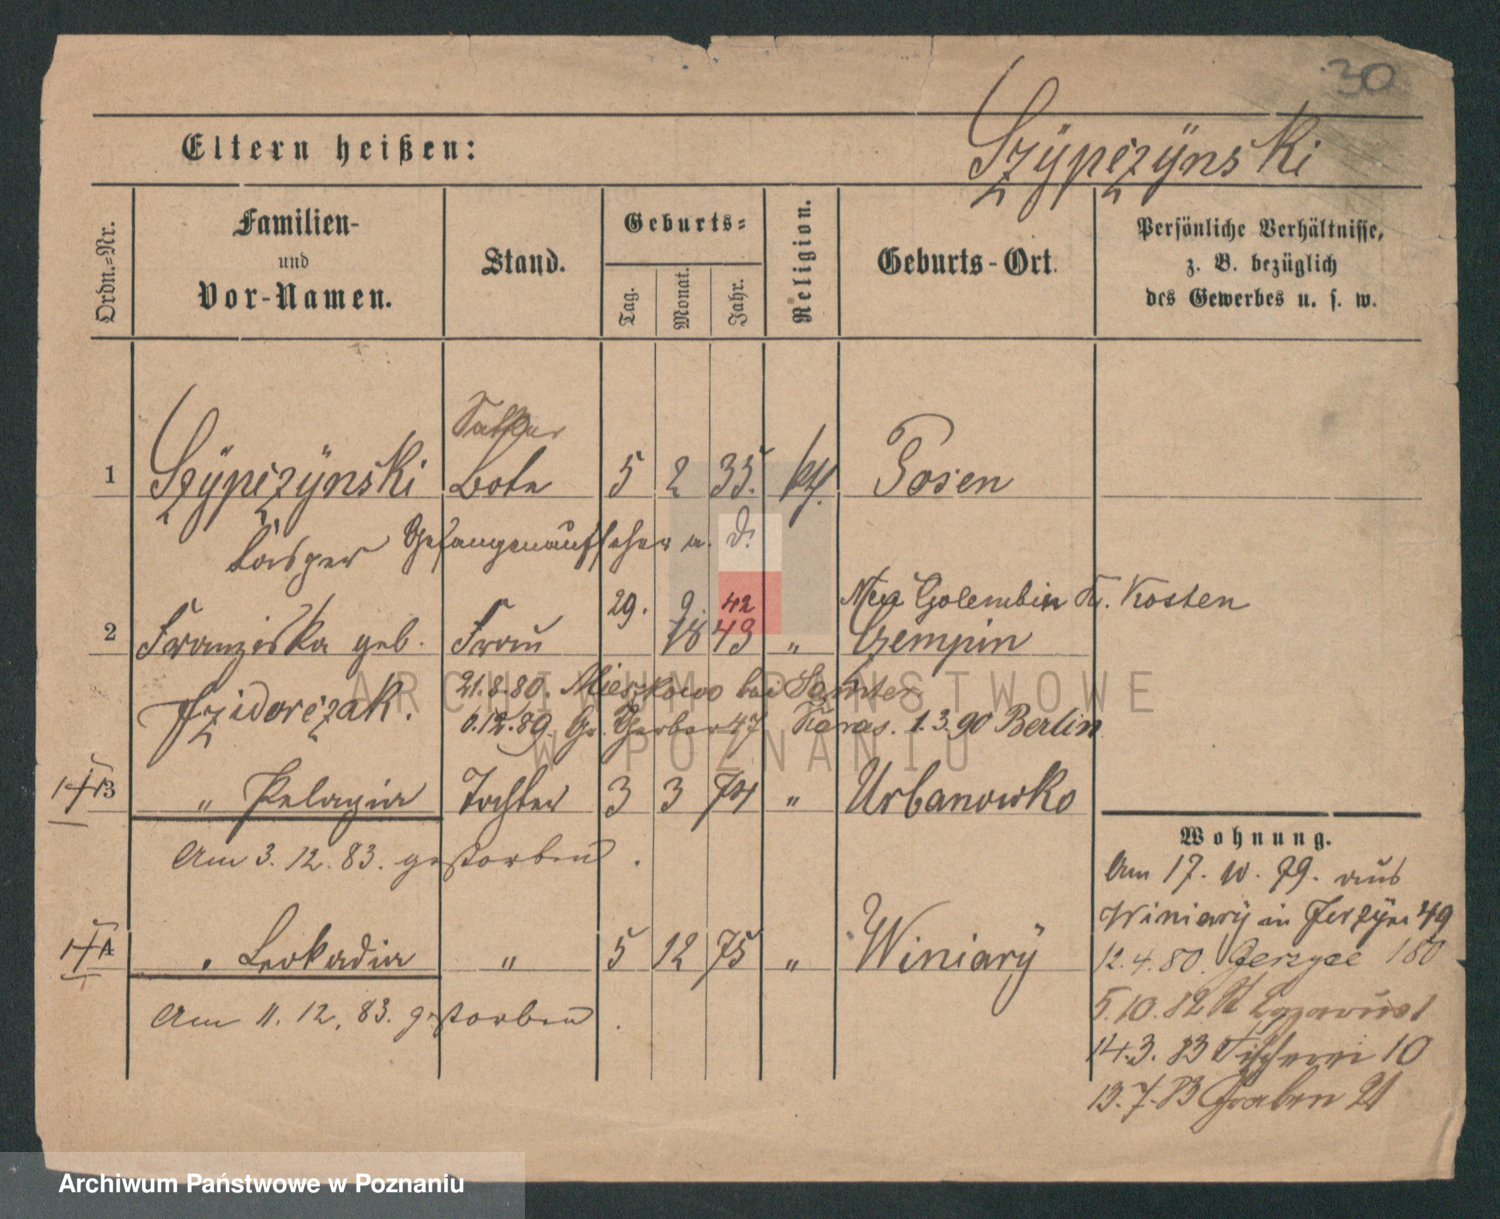 30
Eltern heißen:
Szÿpczÿnski
Ordn.=Nr.
Familien-
und
Vor-Namen.
Stand.
Geburts=
Tag.
Monat.
Jahr.
Religion.
Geburts-Ort.
Persönliche Verhältnisse,
z. B. bezüglich
des Gewerbes u. s. w.
1 Szÿpczÿnski Bote 5 2 35. kth. Posen
Casper Gefangenaufseher a. D.
29. 9. 42 Neu Golembin Kr. Kosten
2 Franziska geb. Frau 18 43 " Czempin
21.8.80. Mieszkowo bei Samter
Izidorczak.
6.12.89. Gr. Gerber 47 1.3.90 Berlin
3 " Pelagia Tochter 3 3 74 " Urbanowko
Am 3. 12. 83. gestorben.
4 " Leokadia " 5 12 75 " Winiarÿ
Am 11. 12. 83. gestorben.
Wohnung.
Am 17. 10. 79. aus
Winiarÿ in Jerzÿce 49
12.4.80. Jerzyce 180
5.10.82 St Lazarus 1
14.3.83 Fischerei 10
13.7.83 Graben 21
ARCHIWUM PAŃSTWOWE
W POZNANIU
Archiwum Państwowe w Poznaniu